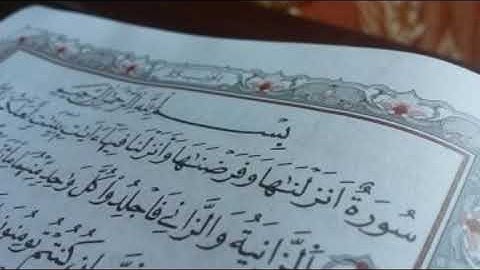 بِسْمِ اللّٰهِ الرَّحْمٰنِ الرَّحِيمِ
سُورَةٌ اَنْزَلْنَاهَا وَفَرَضْنَاهَا وَاَنْزَلْنَا فِيهَٓا اٰيَاتٍ بَيِّنَاتٍ لَعَلَّكُمْ
اَلزَّانِيَةُ وَالزَّانِي فَاجْلِدُوا كُلَّ وَاحِدٍ مِنْهُمَا
اِنْ كُنْتُمْ